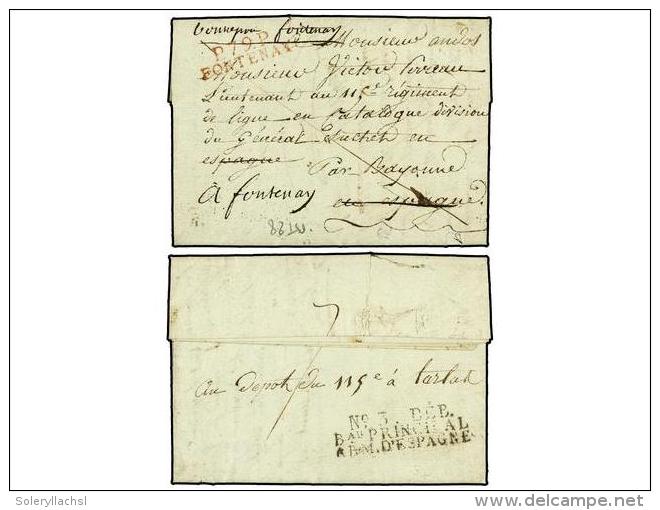 fontenay
P.79.P.
FONTENAY
Monsieur
Monsieur Victor
Lieutenant au 115e régiment
de ligne en Catalogne division
du Général Suchet en
espagne Par Bayonne
à fontenay
en espagne.
au depot du 115e à tarbes
No. 3 DÉB.
Bau PRINCIPAL
ARM. D'ESPAGNE
Soleryllachsl
© delcampe.net